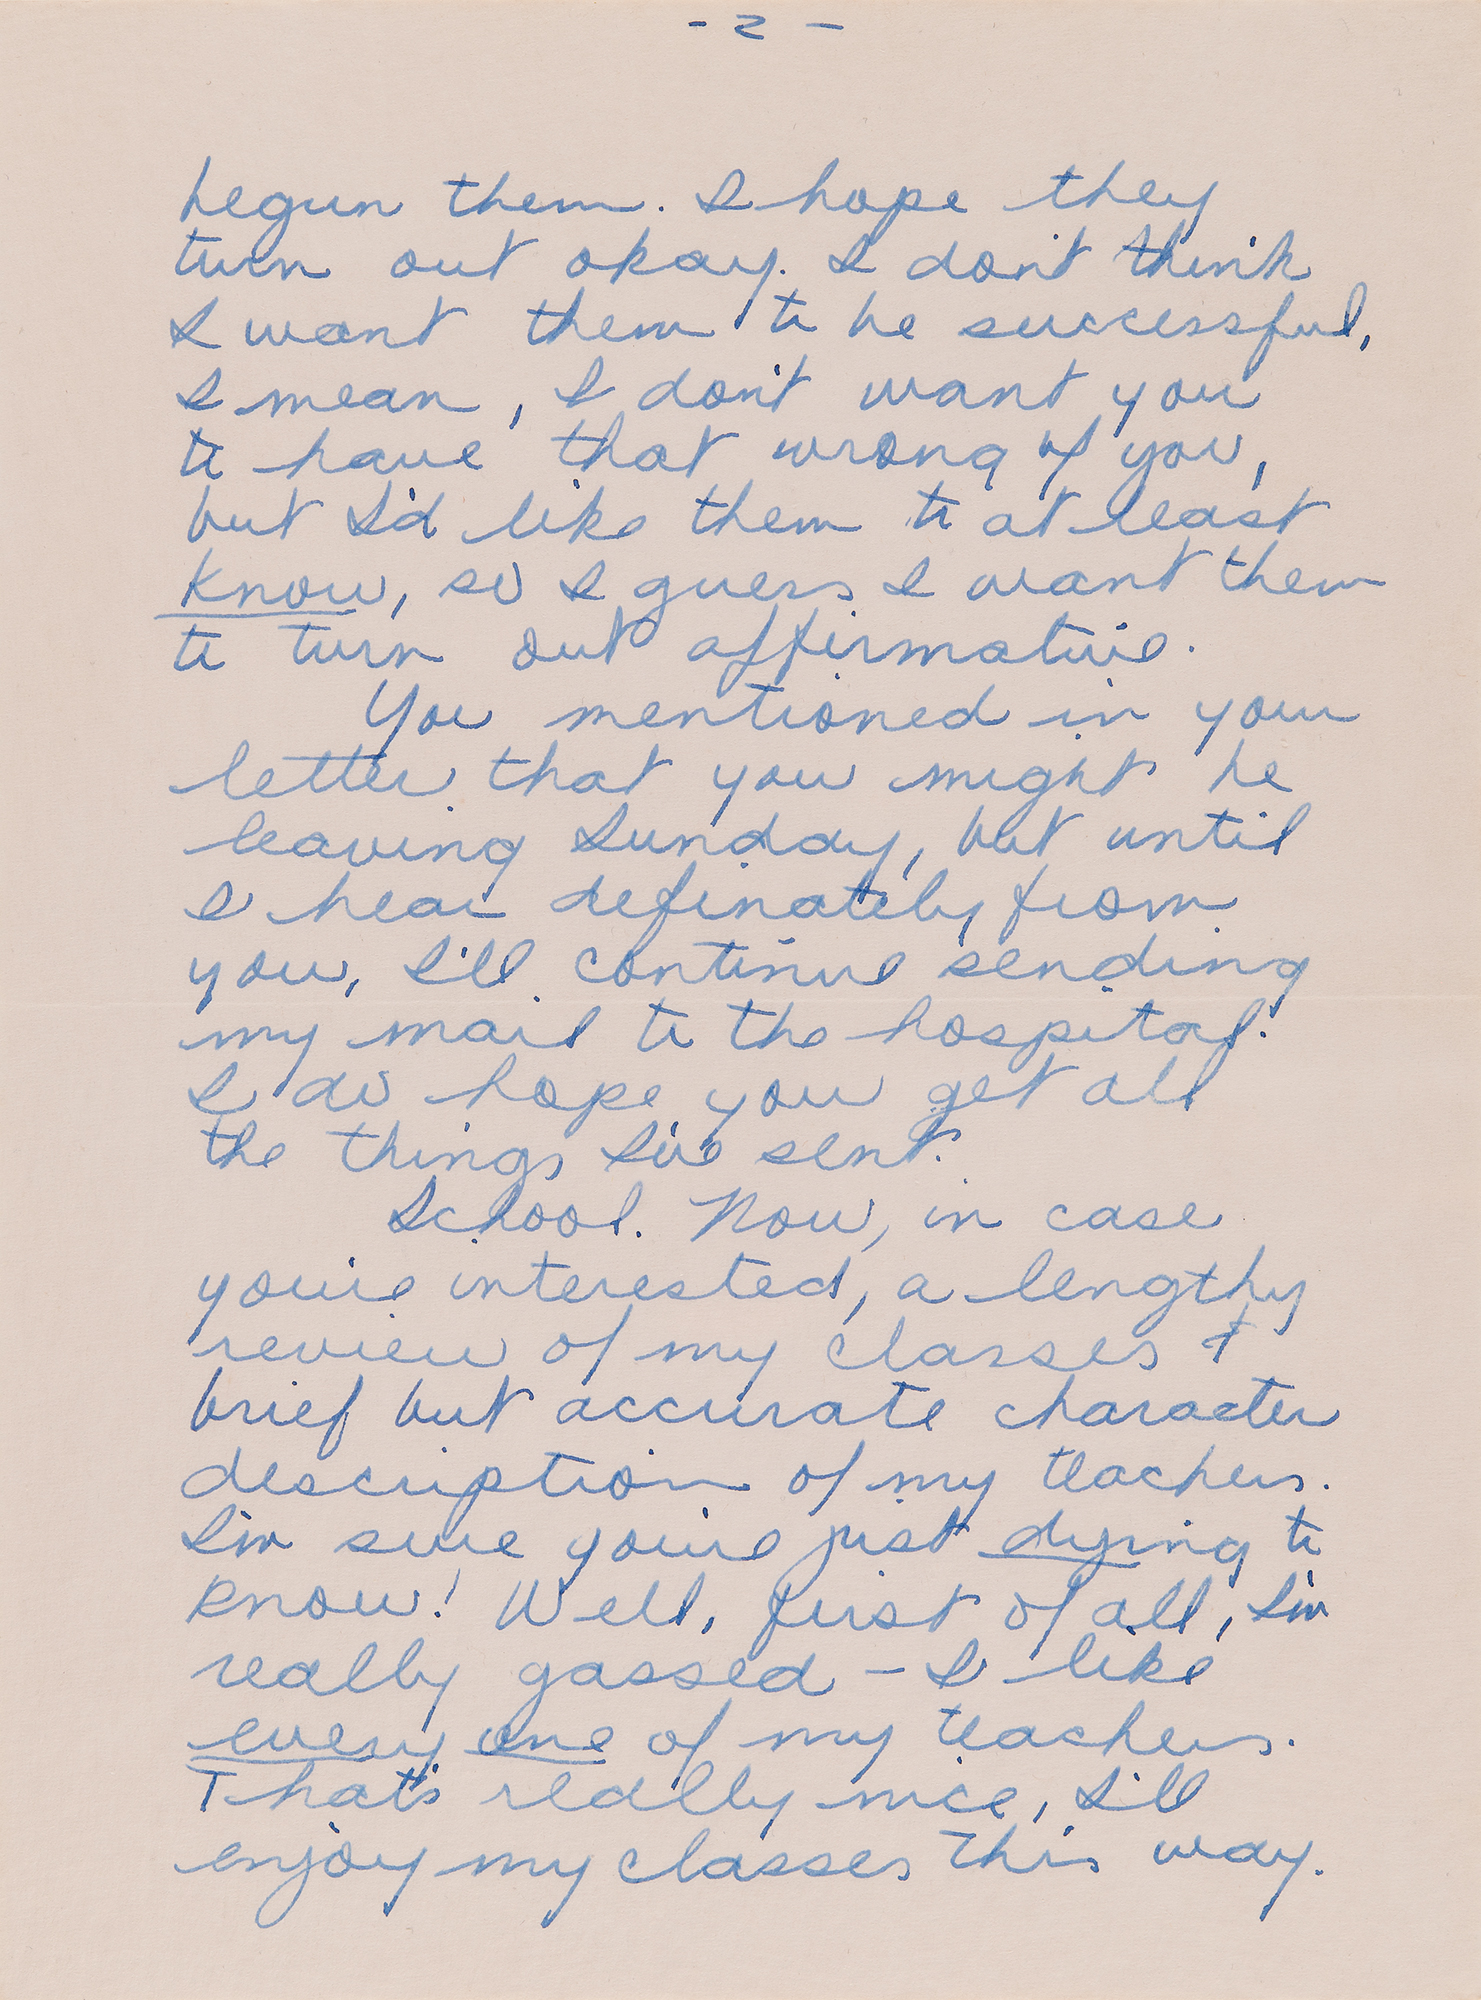 - 2 -
begun them. I hope they
turn out okay. I don't think
I want them to be successful,
I mean, I don't want you
to have that wrong of you,
but I'd like them to at least
know, so I guess I want them
to turn out affirmative.
You mentioned in your
letter that you might be
leaving Sunday, but until
I hear definately from
you, I'll continue sending
my mail to the hospital.
I do hope you get all
the things I've sent.
School. Now, in case
you're interested, a lengthy
review of my classes &
brief but accurate character
description of my teachers.
I'm sure you're just dying to
know! Well, first of all, I'm
really gassed - I like
every one of my teachers.
That's really nice, I'll
enjoy my classes this way.